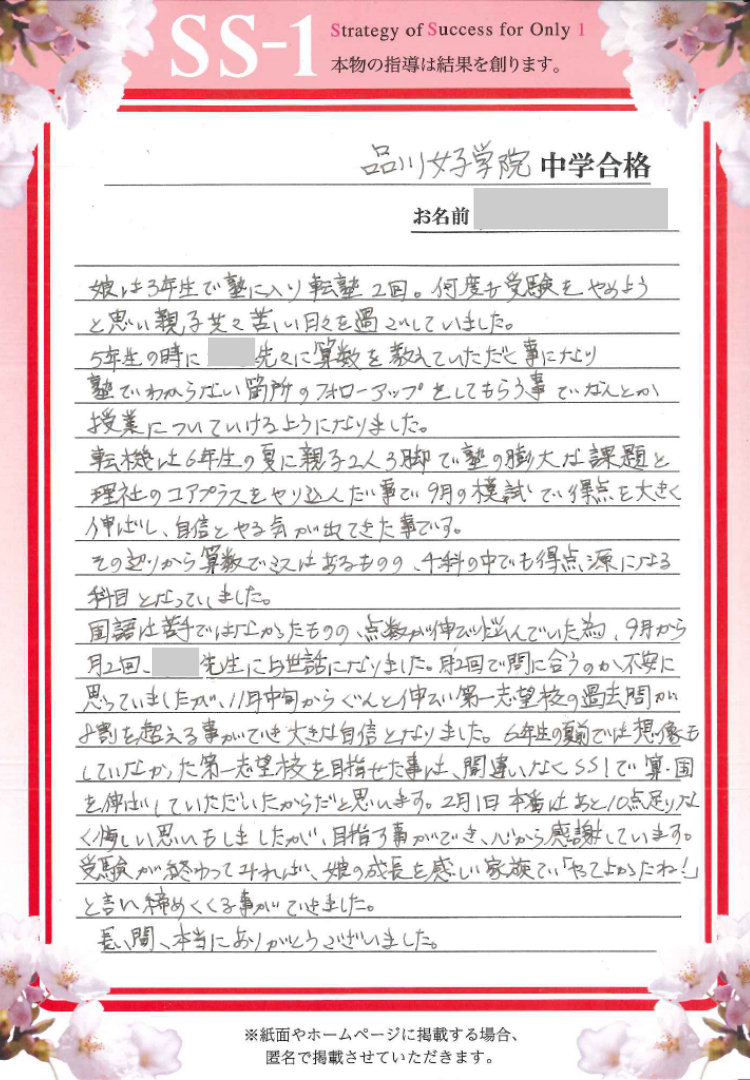 SS-1
Strategy of Success for Only 1
本物の指導は結果を創ります。
品川女子学院 中学合格
お名前
娘は3年生で塾に入り転塾2回。何度も受験をやめよう
と思い親子共々苦しい日々を過ごしていました。
5年生の時に 先生に算数を教えていただく事になり
塾でわからない箇所のフォローアップをしてもらう事でなんとか
授業についていけるようになりました。
転機は6年生の夏に親子2人3脚で塾の膨大な課題と
理社のコアプラスをやり込んだ事で9月の模試で得点を大きく
伸ばし、自信とやる気が出てきた事です。
その辺りから算数でミスはあるものの、4科の中でも得点源になる
科目となっていました。
国語は苦手ではなかったものの、点数が伸び悩んでいた為、9月から
月2回、 先生にお世話になりました。月2回で間に合うのか不安に
思っていましたが、11月中旬からぐんと伸びい第一志望校の過去問が
8割を超える事ができ大きな自信となりました。6年生の夏前では想像も
していなかった第一志望校を目指せた事は、間違いなくSS1で算・国
を伸ばしていただいたからだと思います。2月1日本番はあと10点足りな
く悔しい思いもしましたが、目指す事ができ、心から感謝しています。
受験が終わってみれば、娘の成長を感じ家族で「やってよかったね!」
と言い締めくくる事ができました。
長い間、本当にありがとうございました。
※紙面やホームページに掲載する場合、
匿名で掲載させていただきます。